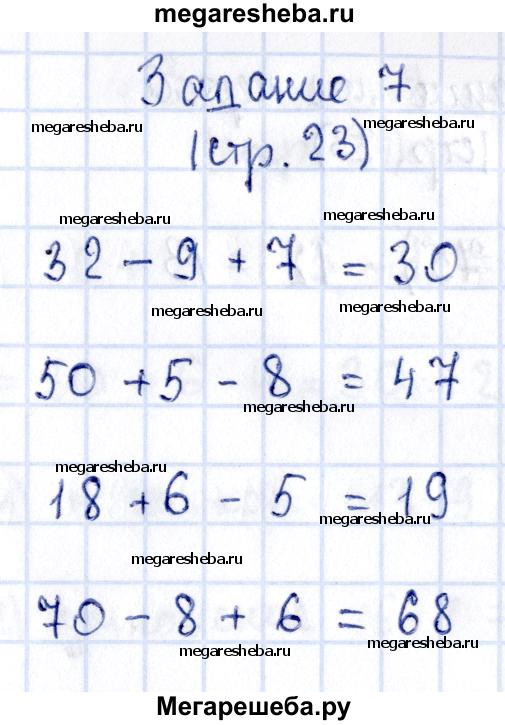 megaresheba.ru
Задание 7
megaresheba.ru megaresheba.ru
(стр. 23)
megaresheba.ru megaresheba.ru
32 - 9 + 7 = 30
megaresheba.ru megaresheba.ru
50 + 5 - 8 = 47
megaresheba.ru
megaresheba.ru
18 + 6 - 5 = 19
megaresheba.ru
megaresheba.ru
70 - 8 + 6 = 68
megaresheba.ru megaresheba.ru
Мегарешеба.ру